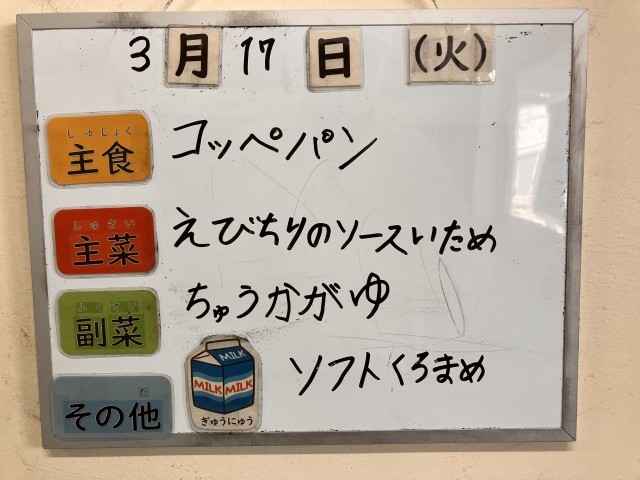 3月17日(火)
しゅしょく
主食
コッペパン
しゅさい
主菜
えびちりのソースいため
ふくさい
副菜
ちゅうかがゆ
た
その他
MILK
MILK MILK
ぎゅうにゅう
ソフトくろまめ